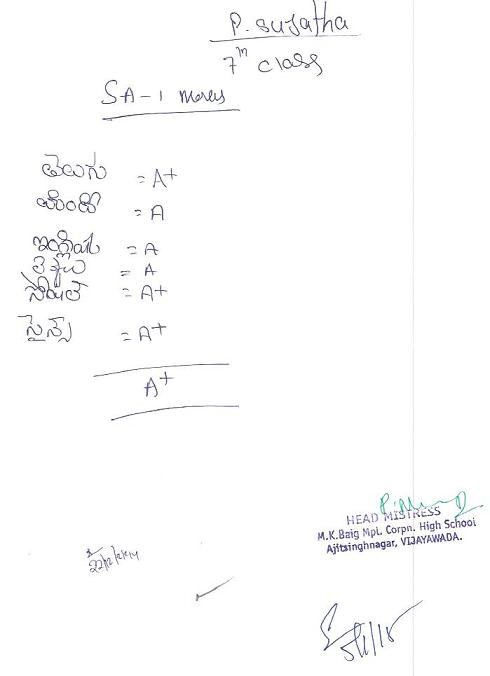 P. sujatha
7th class
SA-1 Marks
తెలుగు = A+
హిందీ = A
ఇంగ్లీషు = A
లెక్కలు = A
సోషల్ = A+
సైన్స్ = A+
A+
HEAD MISTRESS
M.K.Baig Mpl. Corpn. High School
Ajitsinghnagar, VIJAYAWADA.